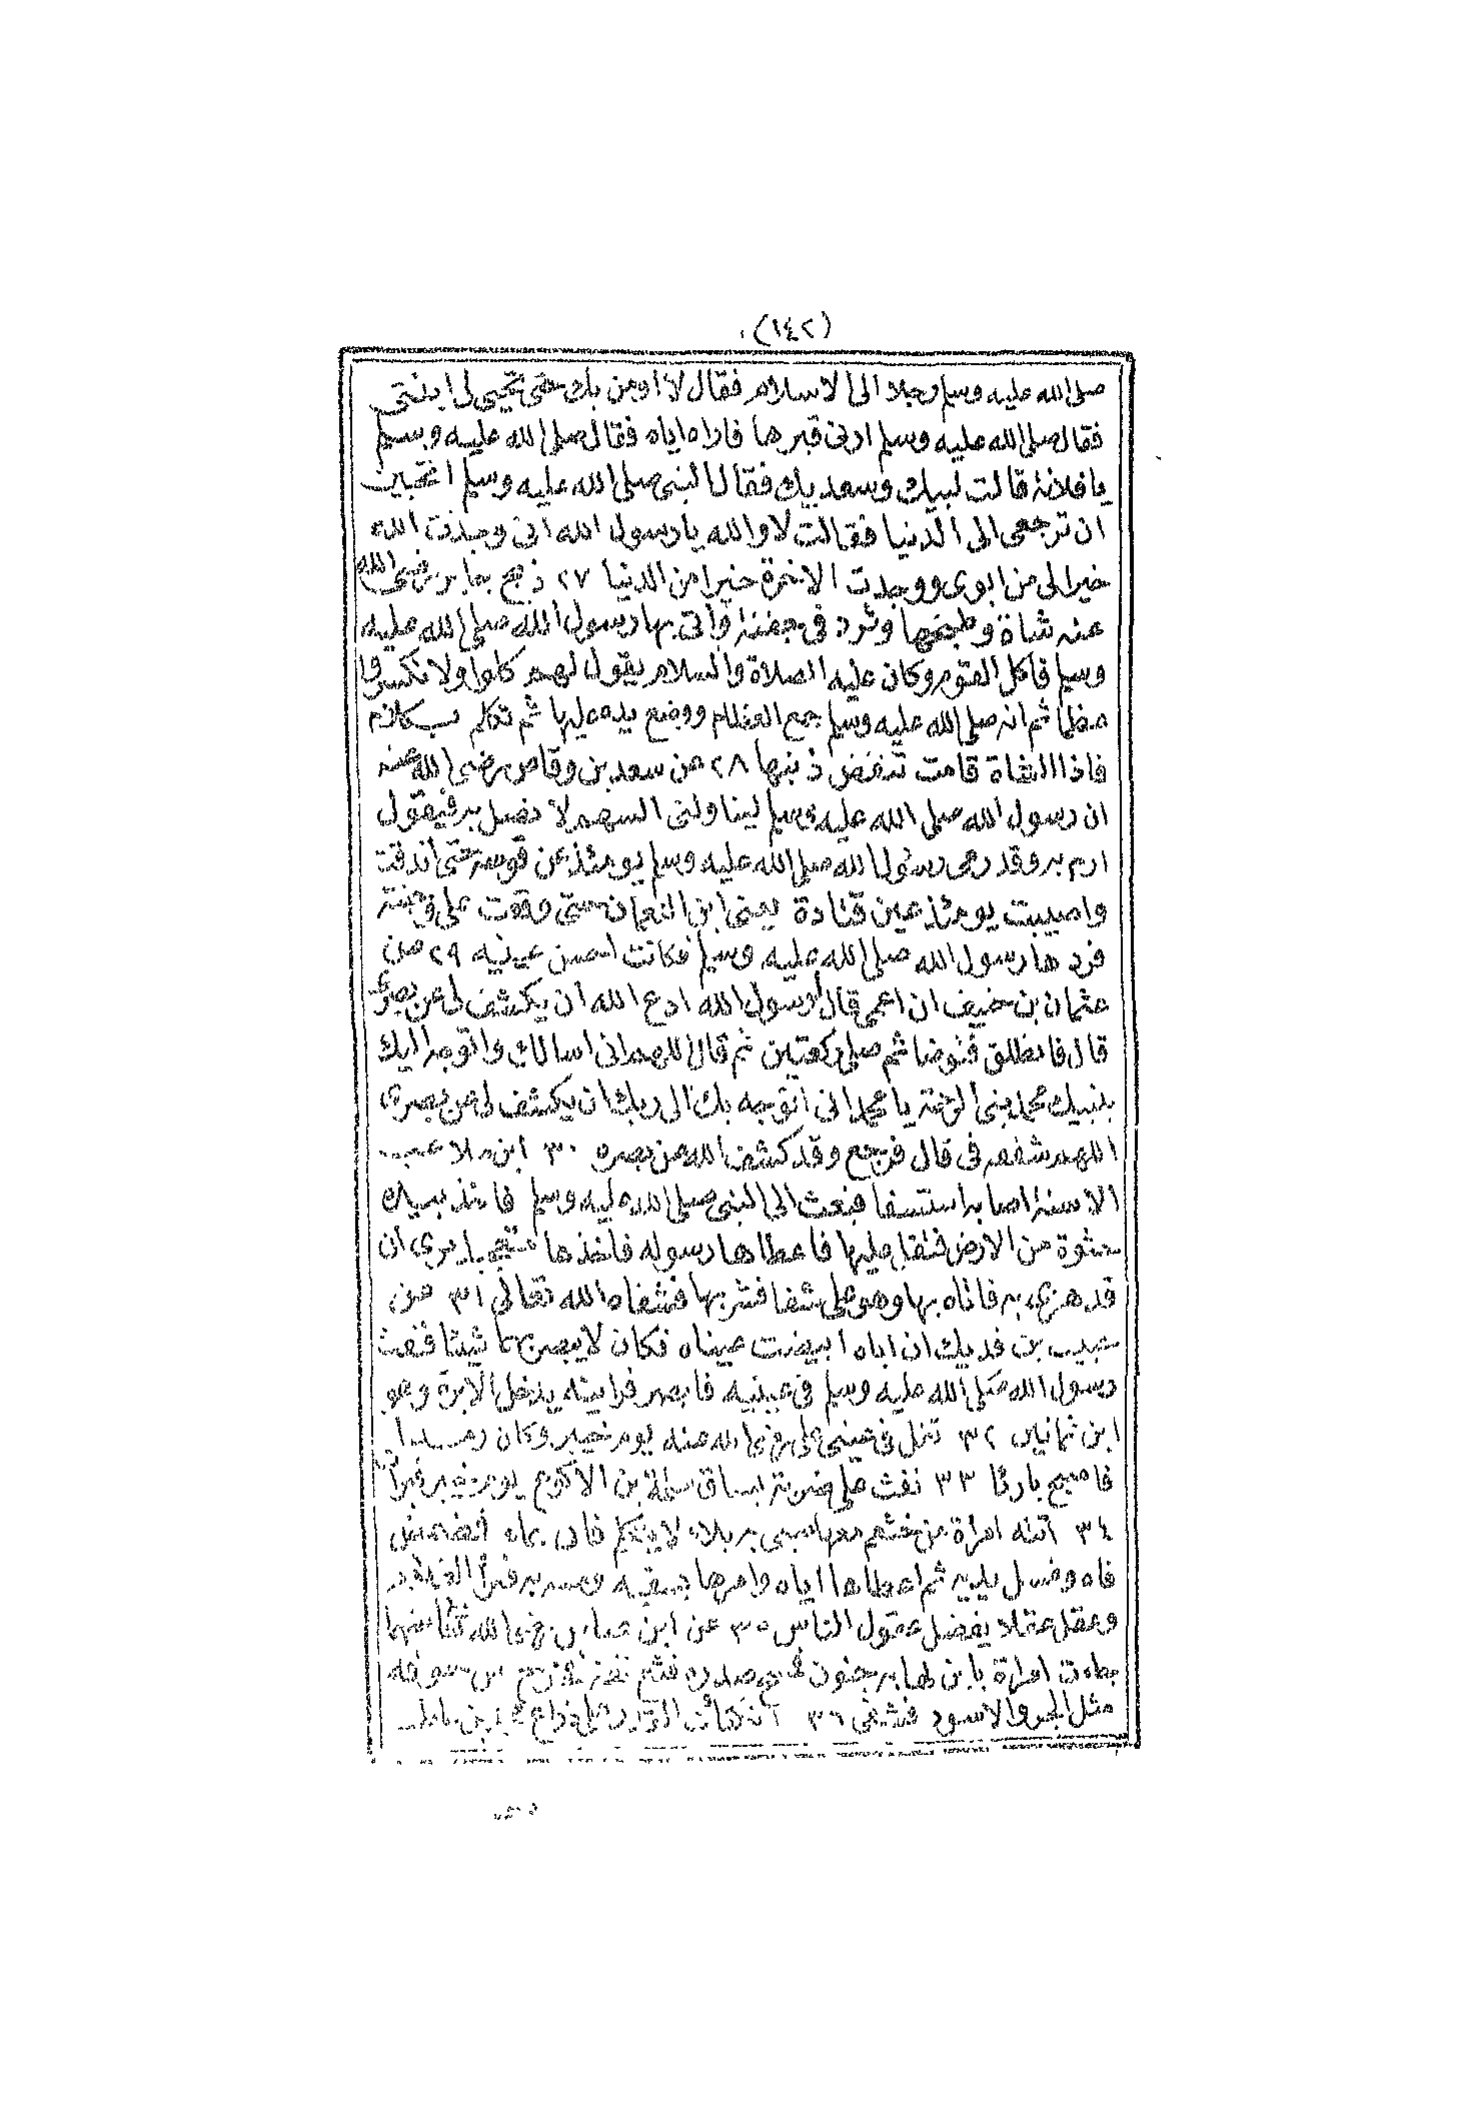 (١٤٢)
صلى الله عليه وسلم رجلا الى الاسلام فقال لا اومن بك حتى تحيى لى ابنتى
فقال صلى الله عليه وسلم ارنى قبرها فاراه اياه فقال صلى الله عليه وسلم
يا فلانة قالت لبيك وسعديك فقال النبى صلى الله عليه وسلم اتحبين
ان ترجعى الى الدنيا فقالت لا والله يا رسول الله انى وجدت الله
خيرا لى من ابوى ووجدت الاخرة خيرا من الدنيا ٢٧ ذبح جابر رضى الله
عنه شاة وطبخها وثرد فى جفنة وأتى بها رسول الله صلى الله عليه
وسلم فأكل القوم وكان عليه الصلاة والسلام يقول لهم كلوا ولا تكسروا
عظما ثم انه صلى الله عليه وسلم جمع العظام ووضع يده عليها ثم تكلم بكلام
فاذا الشاة قامت تنفض ذنبها ٢٨ عن سعد بن وقاص رضى الله عنه
ان رسول الله صلى الله عليه وسلم ليناولنى السهم لا نصل به فيقول
ارم به وقد رمى رسول الله صلى الله عليه وسلم يومئذ عن قوسه حتى اندقت
واصيبت يومئذ عين قتادة يعنى ابن النعمان حتى وقعت على وجنته
فردها رسول الله صلى الله عليه وسلم فكانت احسن عينيه ٢٩ عن
عثمان بن حنيف ان اعمى قال يا رسول الله ادع الله ان يكشف لى عن بصرى
قال فانطلق فتوضا ثم صلى ركعتين ثم قال اللهم انى اسالك واتوجه اليك
بنبيك محمد نبى الرحمة يا محمد انى اتوجه بك الى ربك ان يكشف لى عن بصرى
اللهم شفعه فى قال فرجع وقد كشف الله عن بصره ٣٠ ابن ملاعب
الاسنة اصابه استسقا فبعث الى النبى صلى الله عليه وسلم فاخذ بيده
حثوة من الارض فتفل عليها فاعطاها رسوله فأخذها متعجبا يرى ان
قد هزىء به فاتاه بها وهو على شفا فشربها فشفاه الله تعالى ٣١ عن
حبيب بن فديك ان اباه ابيضت عيناه فكان لا يبصر بهما شيئا فنفث
رسول الله صلى الله عليه وسلم فى عينيه فابصر فرايته يدخل الابرة وهو
ابن ثمانين ٣٢ تفل فى عينى على رضى الله عنه يوم خيبر وكان رمدا
فاصبح بارئا ٣٣ نفث على ضربة بساق سلمة بن الاكوع يوم خيبر فبرأ
٣٤ أتته امرأة من خثعم معها صبى به بلاء لا يتكلم فاتى بماء فمضمض
فاه وغسل يديه ثم اعطاها اياه وامرها بسقيه ومسه به فبرأ الغلام
وعقل عقلا يفضل عقول الناس ٣٥ عن ابن عباس رضى الله عنهما
جاءت امرأة بابن لها به جنون فمسح صدره فثع ثعة فخرج من جوفه
مثل الجرو الاسود فشفى ٣٦ القدر على ذراع محمد بن حاطب